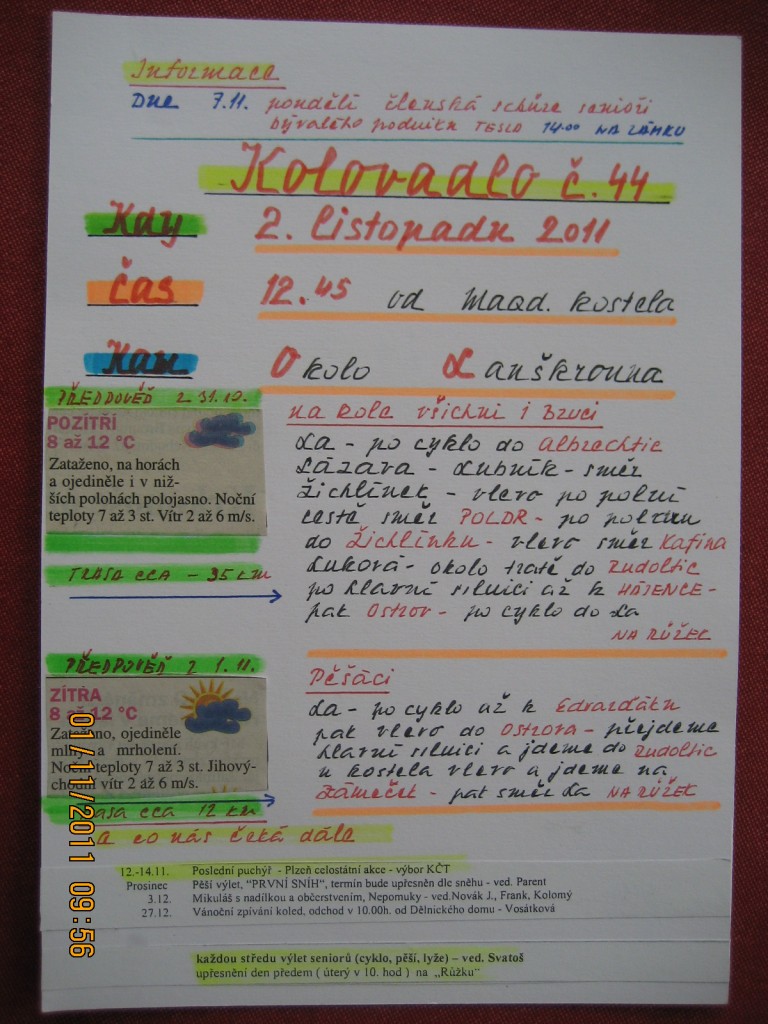 Informace
Dne 7.11. pondělí členská schůze senioři
bývalého podniku TESLO 14.00 NA ZÁMKU
Kolovadlo č. 44
Kdy 2. listopadu 2011
Čas 12.45 od Magd. kostela
Kam Okolo Lanškrouna
PŘEDPOVĚĎ z 31.10.
POZÍTŘÍ
8 až 12 °C
Zataženo, na horách
a ojediněle i v niž-
ších polohách polojasno. Noční
teploty 7 až 3 st. Vítr 2 až 6 m/s.
TRASA CCA - 35 km
na kole všichni i Bzuci
La - po cyklo do Albrechtic
Lázara - Lubník - směr
Žichlínek - vlevo po polní
cestě směr POLDR - po polním
do Žichlínku - vlevo směr Kafina
Luková - okolo tratě do Rudoltic
po hlavní silnici až k HÁJENCE -
pak Ostrov - po cyklo do La
NA RŮŽEK
PŘEDPOVĚĎ z 1.11.
ZÍTRA
8 až 12 °C
Zataženo, ojediněle
mlhy a mrholení.
Noční teploty 7 až 3 st. Jihový-
chodní vítr 2 až 6 m/s.
Trasa cca 12 km
Pěšáci
La - po cyklo až k Edrardáku
pak vlevo do Ostrova - přejdeme
hlavní silnici a jdeme do Rudoltic
u kostela vlevo a jdeme na
Zámeček - pak směr La NA RŮŽEK
a co nás čeká dále
12.-14.11. Poslední puchýř - Plzeň celostátní akce - výbor KČT
Prosinec Pěší výlet, "PRVNÍ SNÍH", termín bude upřesněn dle sněhu - ved. Parent
3.12. Mikuláš s nadílkou a občerstvením, Nepomuky - ved.Novák J., Frank, Kolomý
27.12. Vánoční zpívání koled, odchod v 10.00h. od Dělnického domu - Vosátková
každou středu výlet seniorů (cyklo, pěší, lyže) – ved. Svatoš
upřesnění den předem ( úterý v 10. hod ) na „Růžku"
01/11/2011 09:56